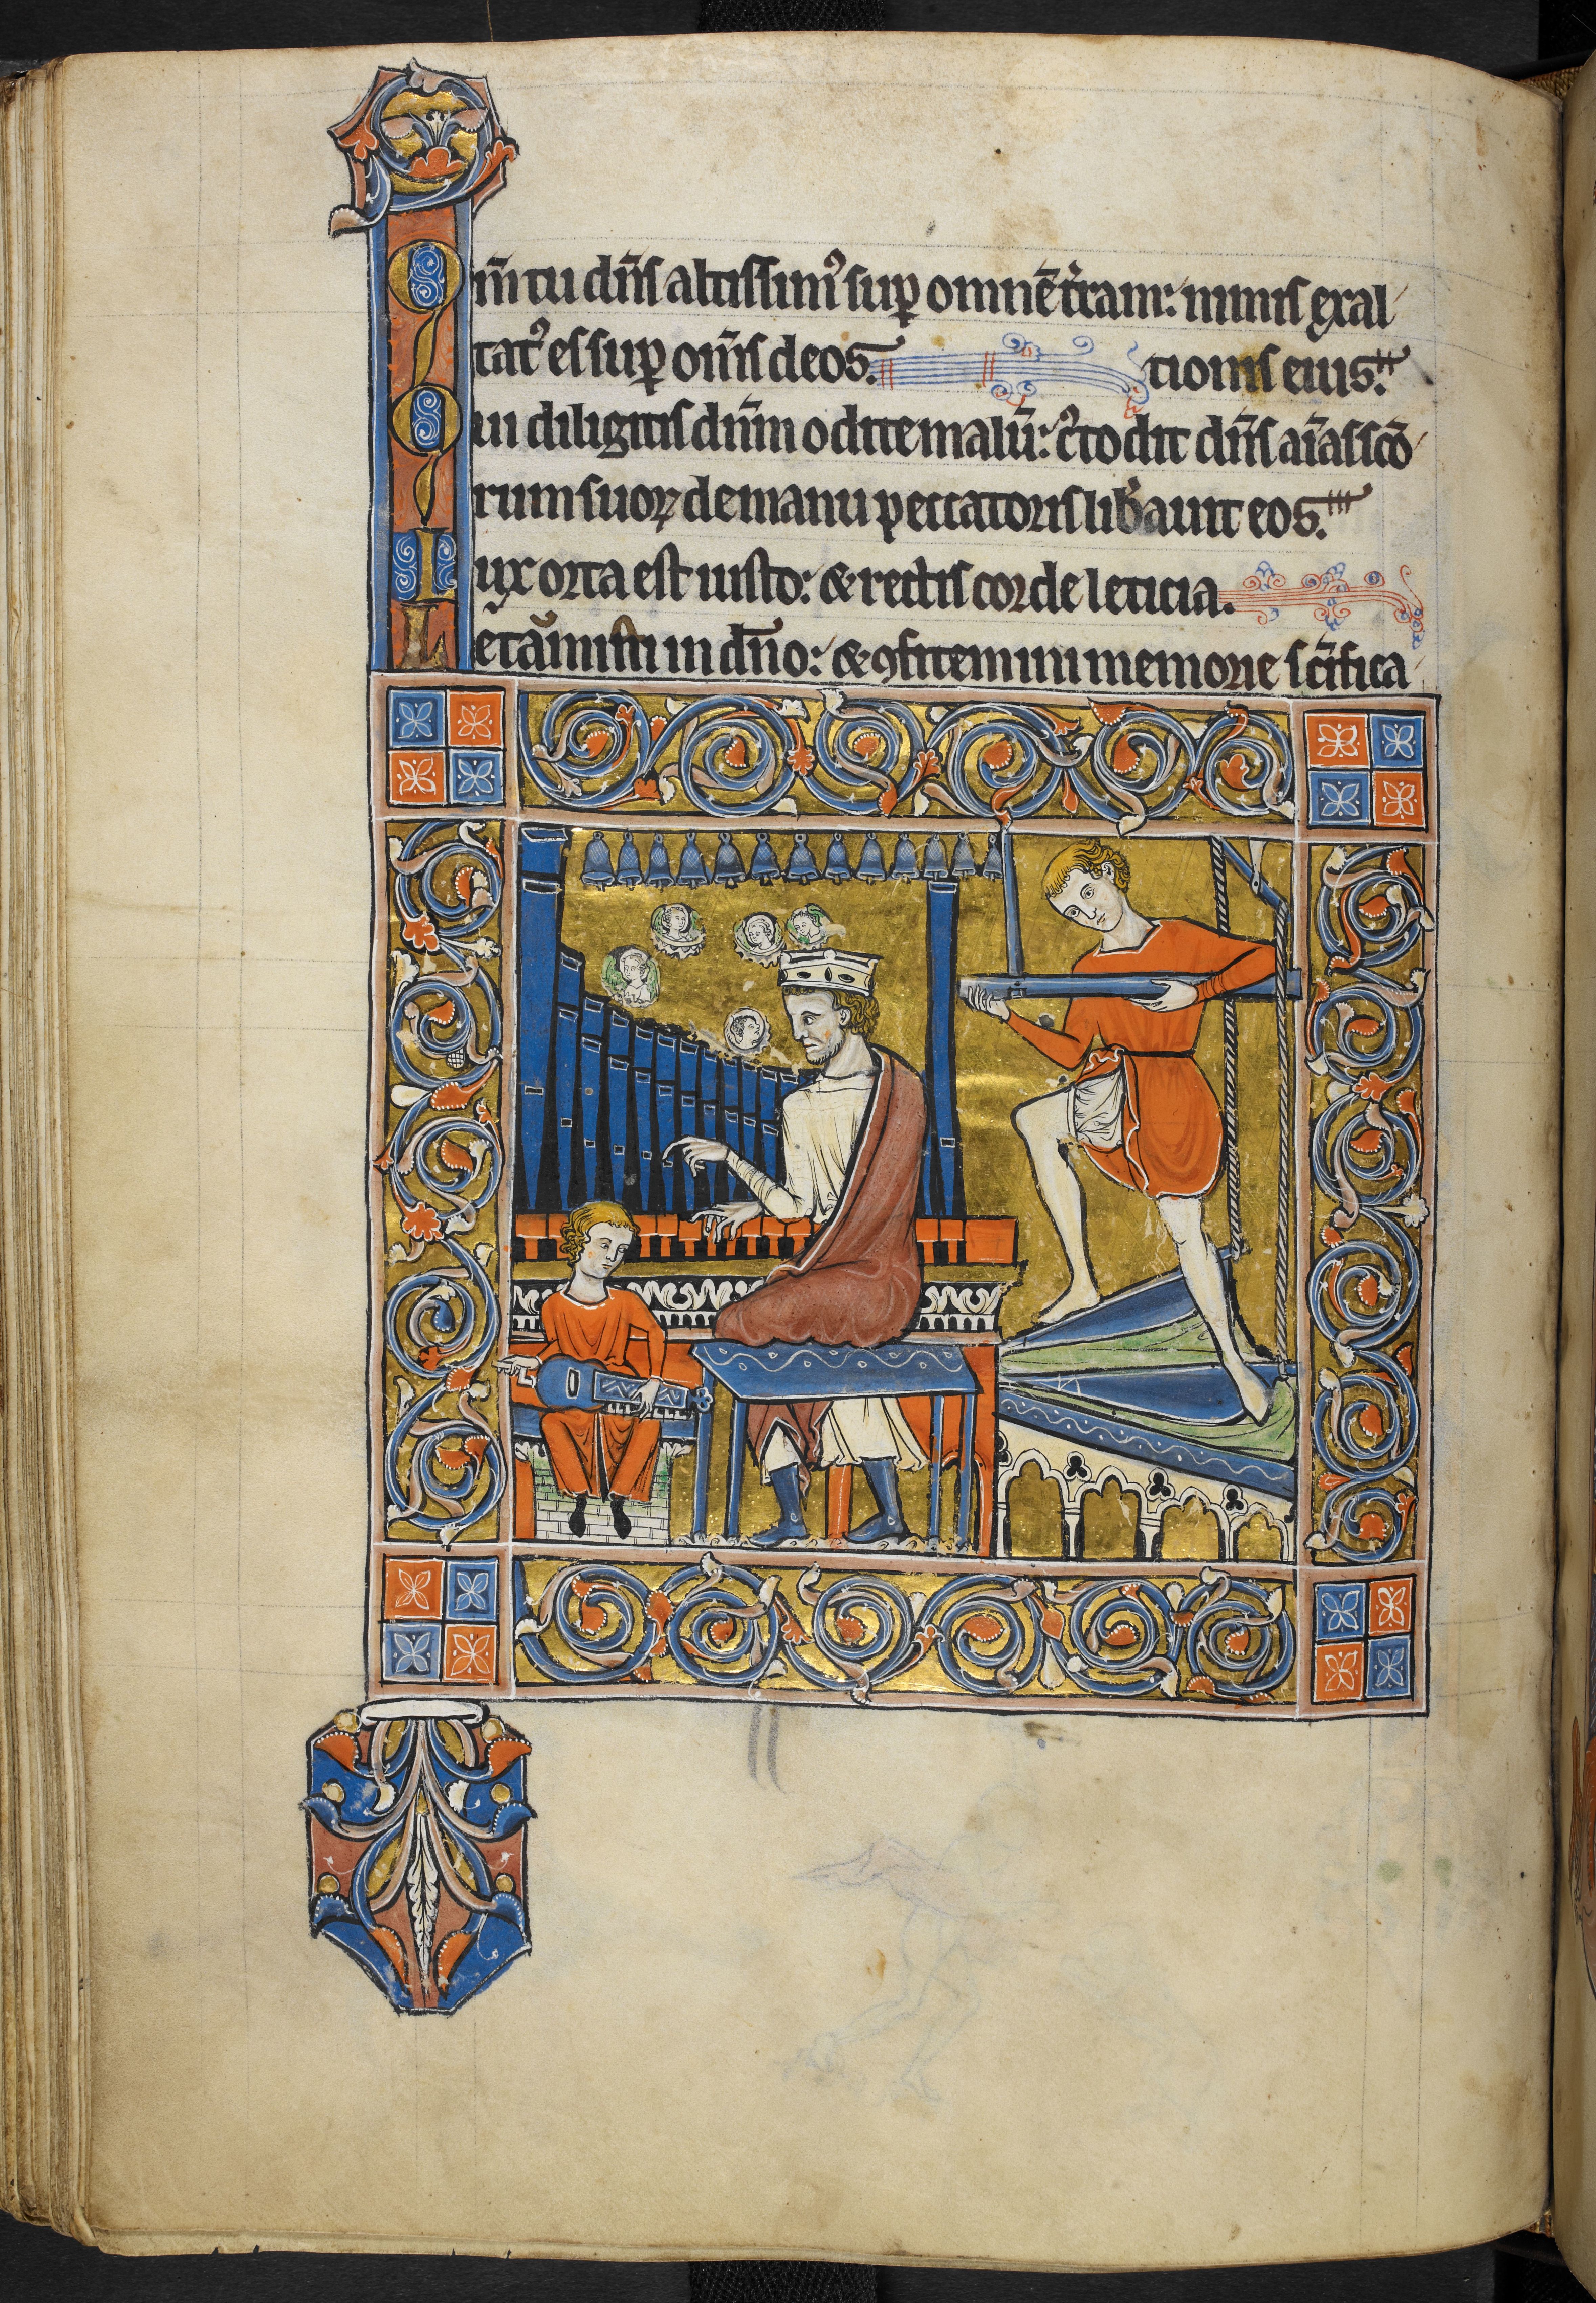 Qm̄ tu dn̄s altissimꝰ suꝑ omnē t̾ram: nimis exal
tatꝰ es suꝑ om̄s deos. tionis eius.
Qui diligitis dn̄m odite malū: cꝰtodit dn̄s aīas scō
rum suoꝝ de manu peccatoris lib̾auit eos.
Lux orta est iusto: & rectis corde leticia.
Letamini in dn̄o: & ꝯfitemini memorie sc̄ifica